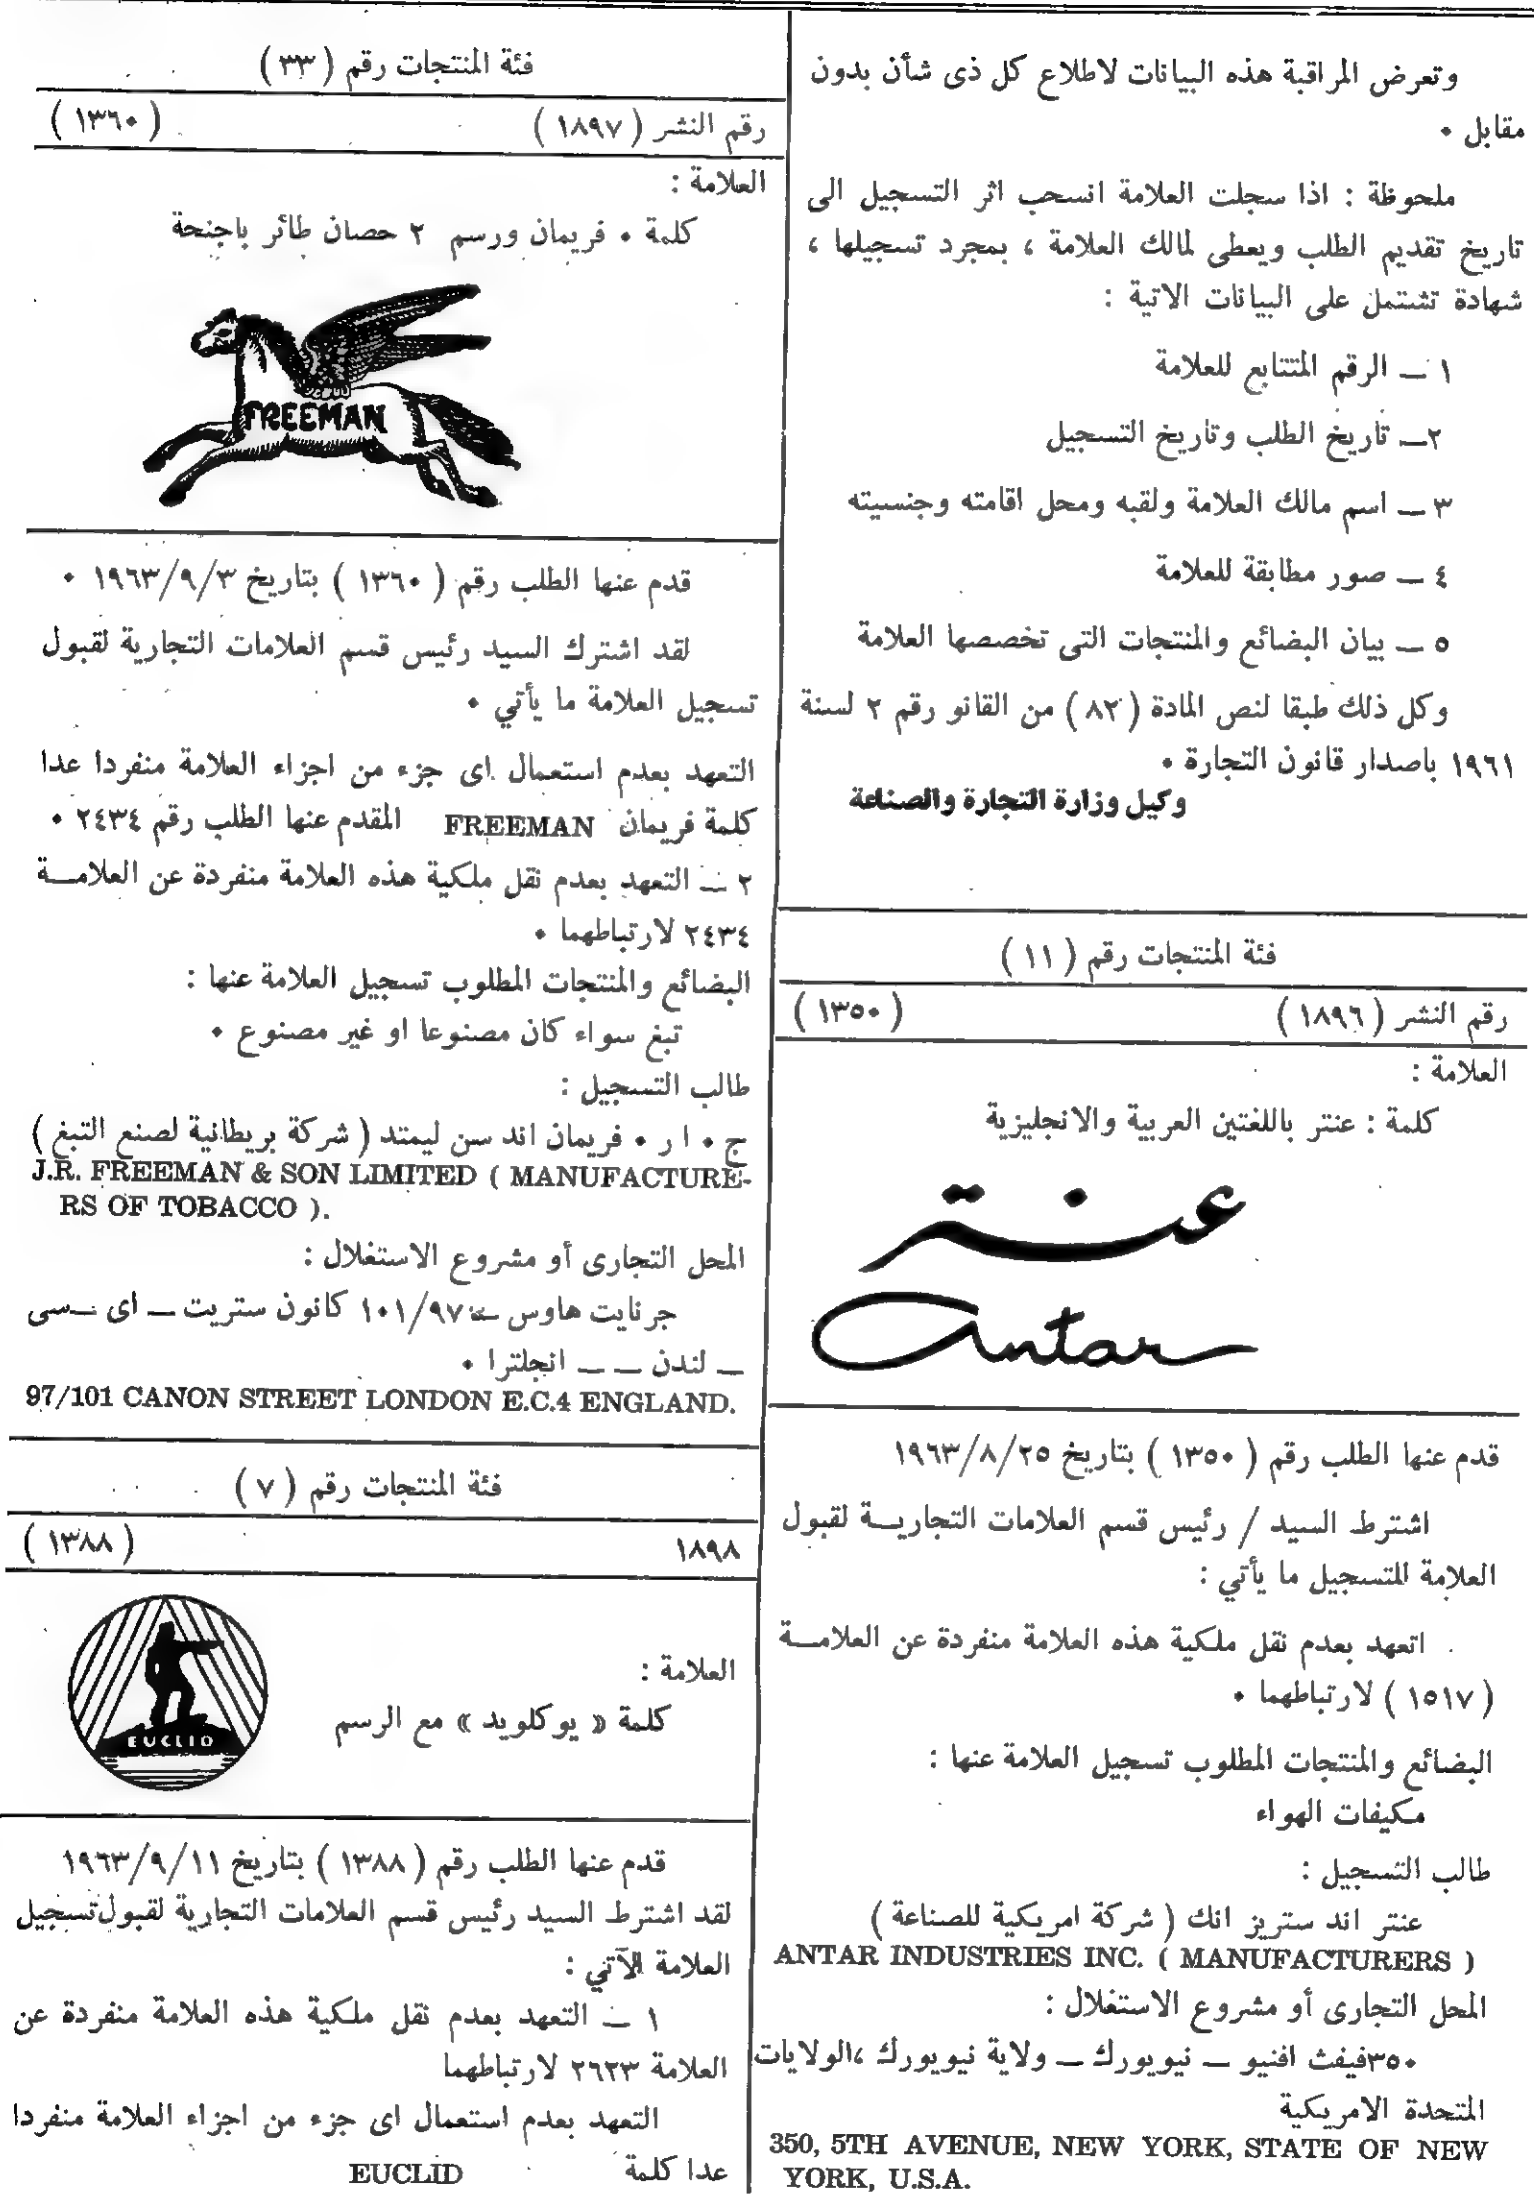 وتعرض المراقبة هذه البيانات لاطلاع كل ذى شأن بدون
مقابل ٠
ملحوظة : اذا سجلت العلامة انسحب اثر التسجيل الى
تاريخ تقديم الطلب ويعطى لمالك العلامة ، بمجرد تسجيلها ،
شهادة تشتمل على البيانات الاتية :
١ ـ الرقم المتتابع للعلامة
٢ـ تاريخ الطلب وتاريخ التسجيل
٣ ـ اسم مالك العلامة ولقبه ومحل اقامته وجنسيته
٤ ـ صور مطابقة للعلامة
٥ ـ بيان البضائع والمنتجات التى تخصصها العلامة
وكل ذلك طبقا لنص المادة ( ٨٢ ) من القانو رقم ٢ لسنة
١٩٦١ باصدار قانون التجارة ٠
وكيل وزارة التجارة والصناعة
فئة المنتجات رقم ( ١١ )
رقم النشر ( ١٨٩٦ ) ( ١٣٥٠ )
العلامة :
كلمة : عنتر باللغتين العربية والانجليزية
عنتر
antar
قدم عنها الطلب رقم ( ١٣٥٠ ) بتاريخ ١٩٦٣/٨/٢٥
اشترط السيد / رئيس قسم العلامات التجاريـة لقبول
العلامة للتسجيل ما يأتي :
اتعهد بعدم نقل ملكية هذه العلامة منفردة عن العلامـة
( ١٥١٧ ) لارتباطهما ٠
البضائع والمنتجات المطلوب تسجيل العلامة عنها :
مكيفات الهواء
طالب التسجيل :
عنتر اند ستريز انك ( شركة امريكية للصناعة )
ANTAR INDUSTRIES INC. ( MANUFACTURERS )
المحل التجارى أو مشروع الاستغلال :
٣٥٠فيفث افنيو ـ نيويورك ـ ولاية نيويورك ،الولايات
المتحدة الامريكية
350, 5TH AVENUE, NEW YORK, STATE OF NEW
YORK, U.S.A.
فئة المنتجات رقم ( ٣٣ )
رقم النشر ( ١٨٩٧ ) ( ١٣٦٠ )
العلامة :
كلمة ٠ فريمان ورسم ٢ حصان طائر باجنحة
FREEMAN
قدم عنها الطلب رقم ( ١٣٦٠ ) بتاريخ ١٩٦٣/٩/٣ ٠
لقد اشترك السيد رئيس قسم العلامات التجارية لقبول
تسجيل العلامة ما يأتي ٠
التعهد بعدم استعمال اى جزء من اجزاء العلامة منفردا عدا
كلمة فريمان FREEMAN المقدم عنها الطلب رقم ٢٤٣٤ ٠
٢ ـ التعهد بعدم نقل ملكية هذه العلامة منفردة عن العلامـة
٢٤٣٤ لارتباطهما ٠
البضائع والمنتجات المطلوب تسجيل العلامة عنها :
تبغ سواء كان مصنوعا او غير مصنوع ٠
طالب التسجيل :
ج ٠ ا ر ٠ فريمان اند سن ليمتد ( شركة بريطانية لصنع التبغ )
J.R. FREEMAN & SON LIMITED ( MANUFACTURE-
RS OF TOBACCO ).
المحل التجارى أو مشروع الاستغلال :
جرنايت هاوس ـ ١٠١/٩٧ كانون ستريت ـ اى ـسى
ـ لندن ـ ـ انجلترا ٠
97/101 CANON STREET LONDON E.C.4 ENGLAND.
فئة المنتجات رقم ( ٧ )
١٨٩٨ ( ١٣٨٨ )
العلامة :
كلمة « يوكلويد » مع الرسم
EUCLID
قدم عنها الطلب رقم ( ١٣٨٨ ) بتاريخ ١٩٦٣/٩/١١
لقد اشترط السيد رئيس قسم العلامات التجارية لقبول تسجيل
العلامة الآتي :
١ ـ التعهد بعدم نقل ملكية هذه العلامة منفردة عن
العلامة ٢٦٢٣ لارتباطهما
التعهد بعدم استعمال اى جزء من اجزاء العلامة منفردا
عدا كلمة EUCLID